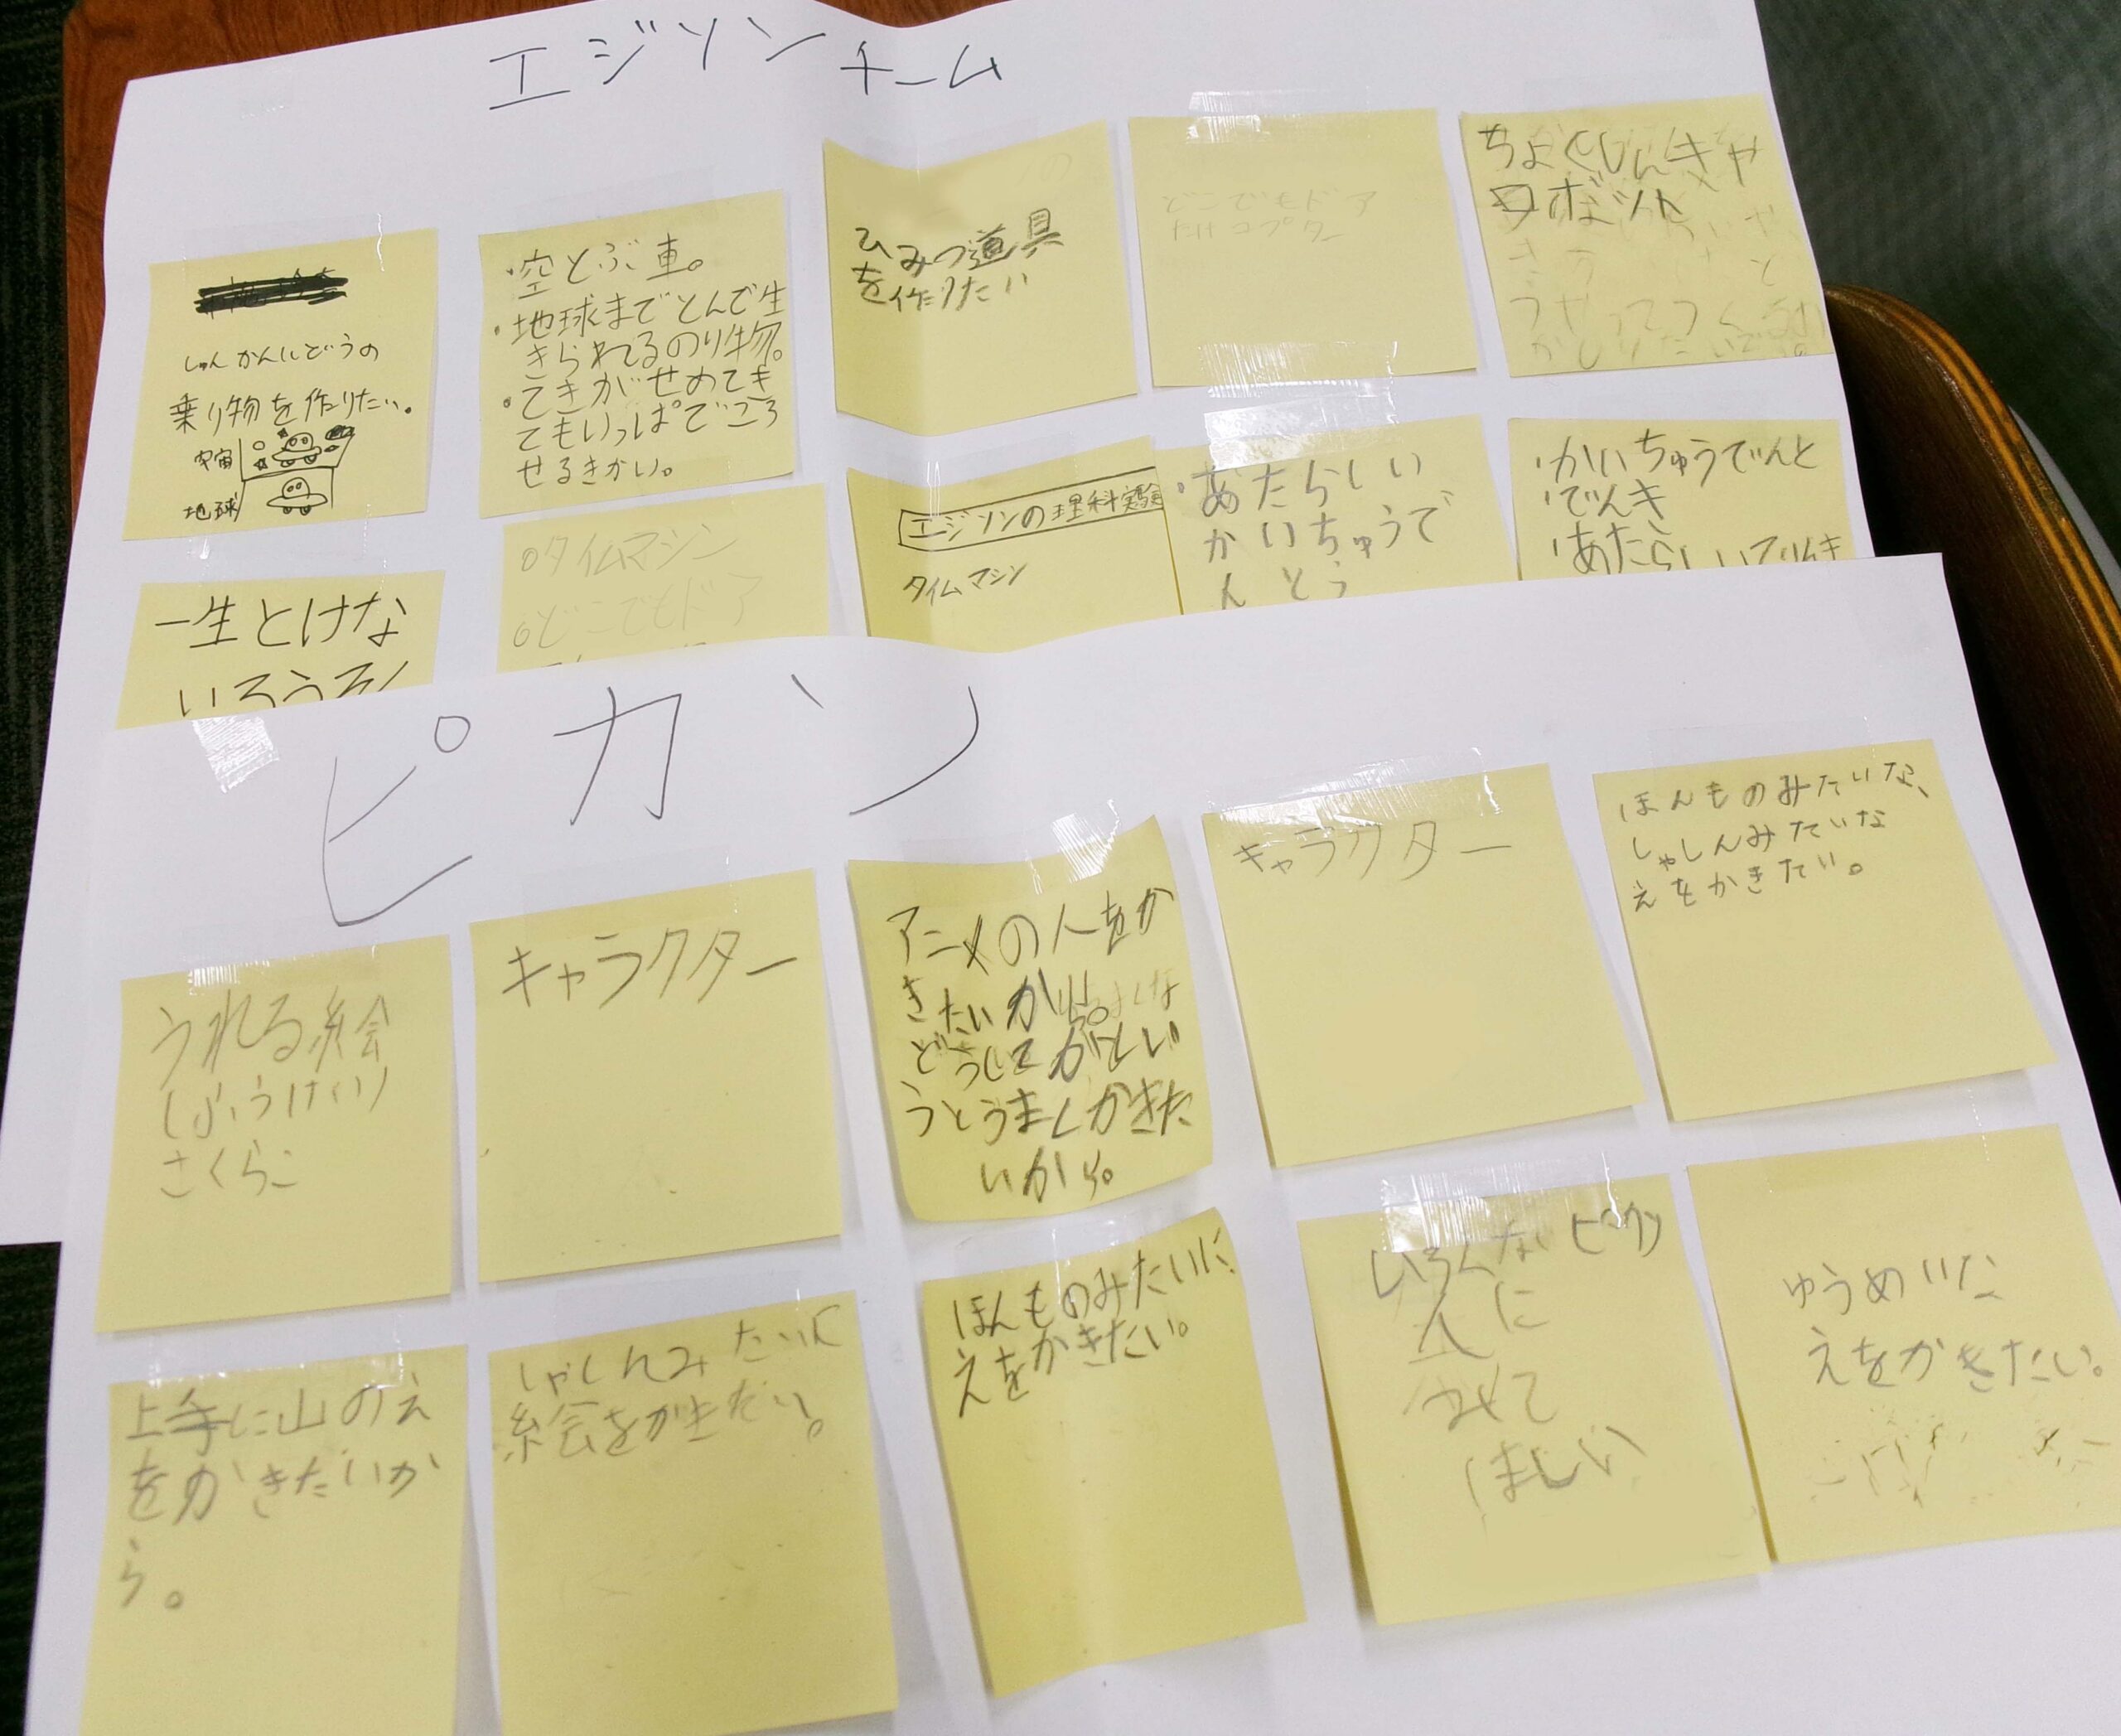 エジソンチーム
しゅんかんいどうの
乗り物を作りたい。
宇宙
地球
・空とぶ車。
・地球までとんで生
きられるのり物。
・てきがせめてき
てもいっぱつでころ
せるきかい。
ひみつ道具
を作りたい
どこでもドア
たけコプター
ロボット
一生とけな
いろうそく
○タイムマシン
○どこでもドア
エジソンの理科実験
タイムマシン
・あたらしい
かいちゅうで
んとう
・かいちゅうでんと
・でんき
・あたらしいでんき
ピカソ
うれる絵
(ふうけい)
さくらこ
キャラクター
アニメの人をか
きたいから。
どうしてかとい
うとうまくかきた
いから。
キャラクター
ほんものみたいな、
しゃしんみたいな
えをかきたい。
上手に山のえ
をかきたいか
ら。
しゃしんみたいに
絵をかきたい。
ほんものみたいに
えをかきたい。
人に
みて
ほしい
ゆうめいな
えをかきたい。